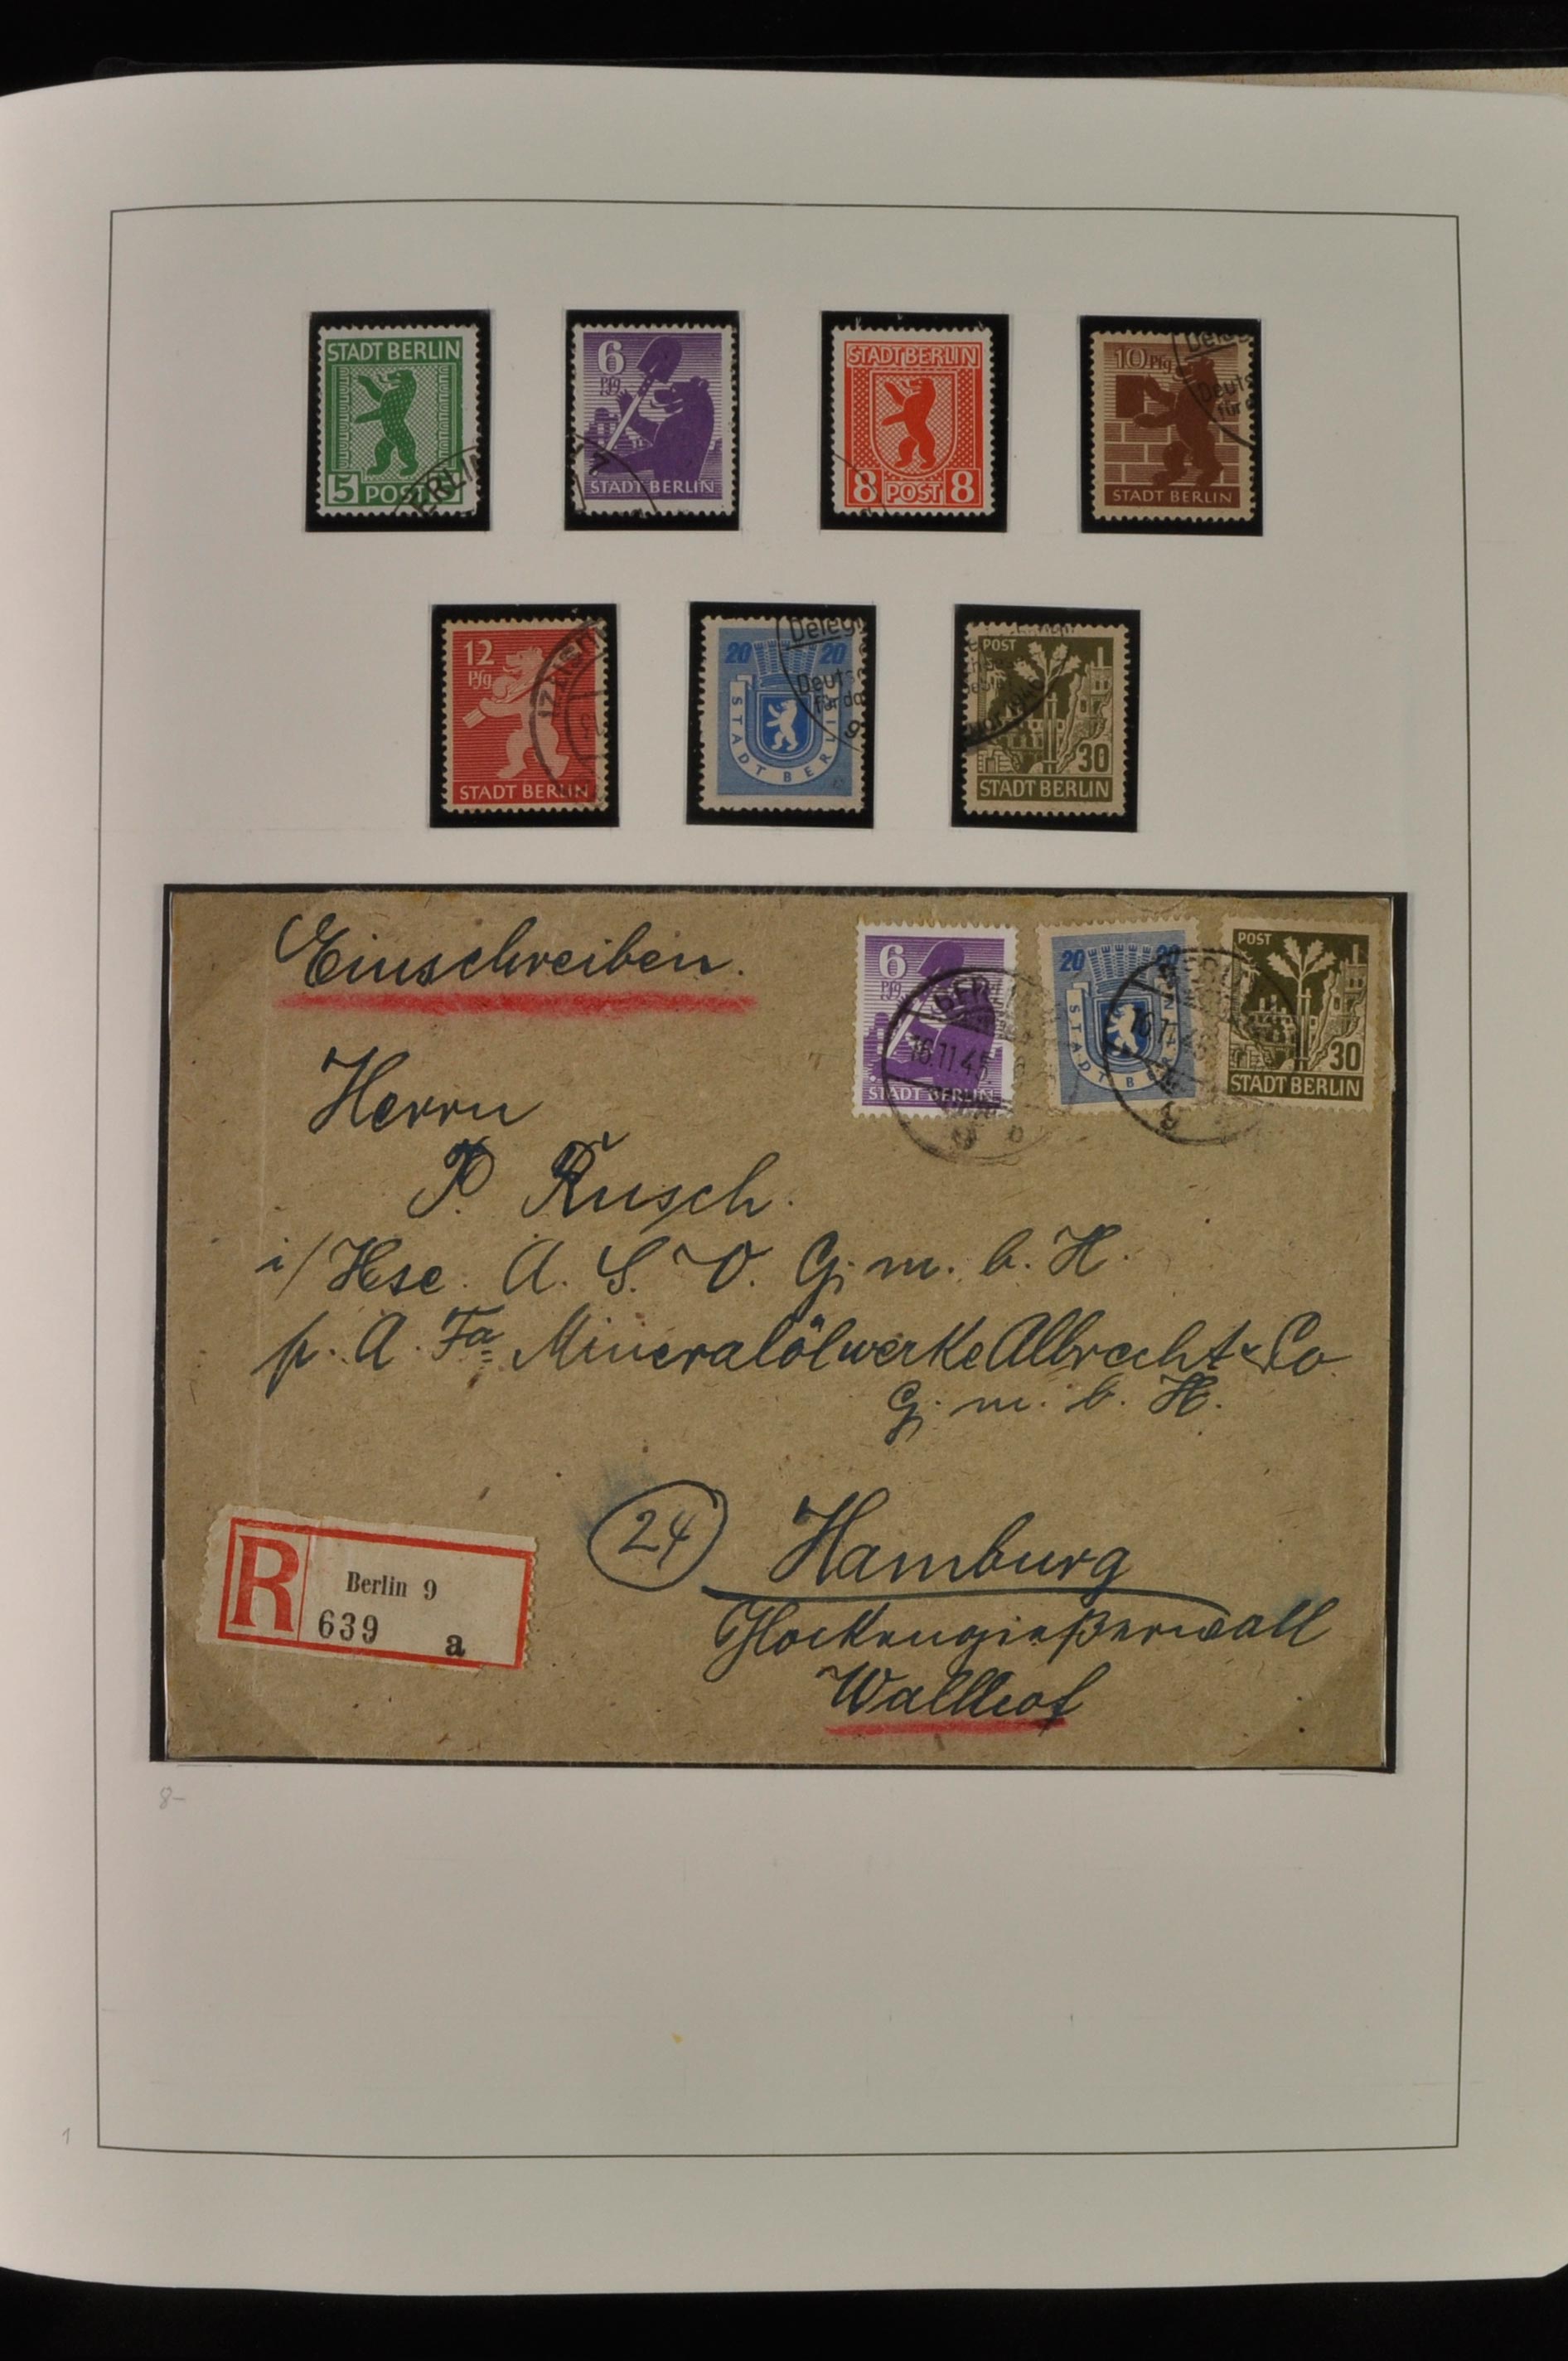 STADT BERLIN
5 POST
ERLIN
6
Pfg
STADT BERLIN
STADT BERLIN
8 POST 8
10 Pfg
STADT BERLIN
Deuts
für
12
Pfg
STADT BERLIN
20 20
STADT BERLIN
Deleg
Deutsc
für da
POST
30
STADT BERLIN
Einschreiben.
6
Pfg
STADT BERLIN
BERLIN
16.11.45
9 b
20 20
STADT BERLIN
16.11.45
9
POST
30
STADT BERLIN
Herrn
P. Rusch.
i/Hse. A. S. V. G. m. b. H.
p. A. Fa. Mineralölwerke Albrecht & Co
G. m. b. H.
24 Hamburg
Glockengießerwall
Wallhof
R Berlin 9
639 a
8-
1